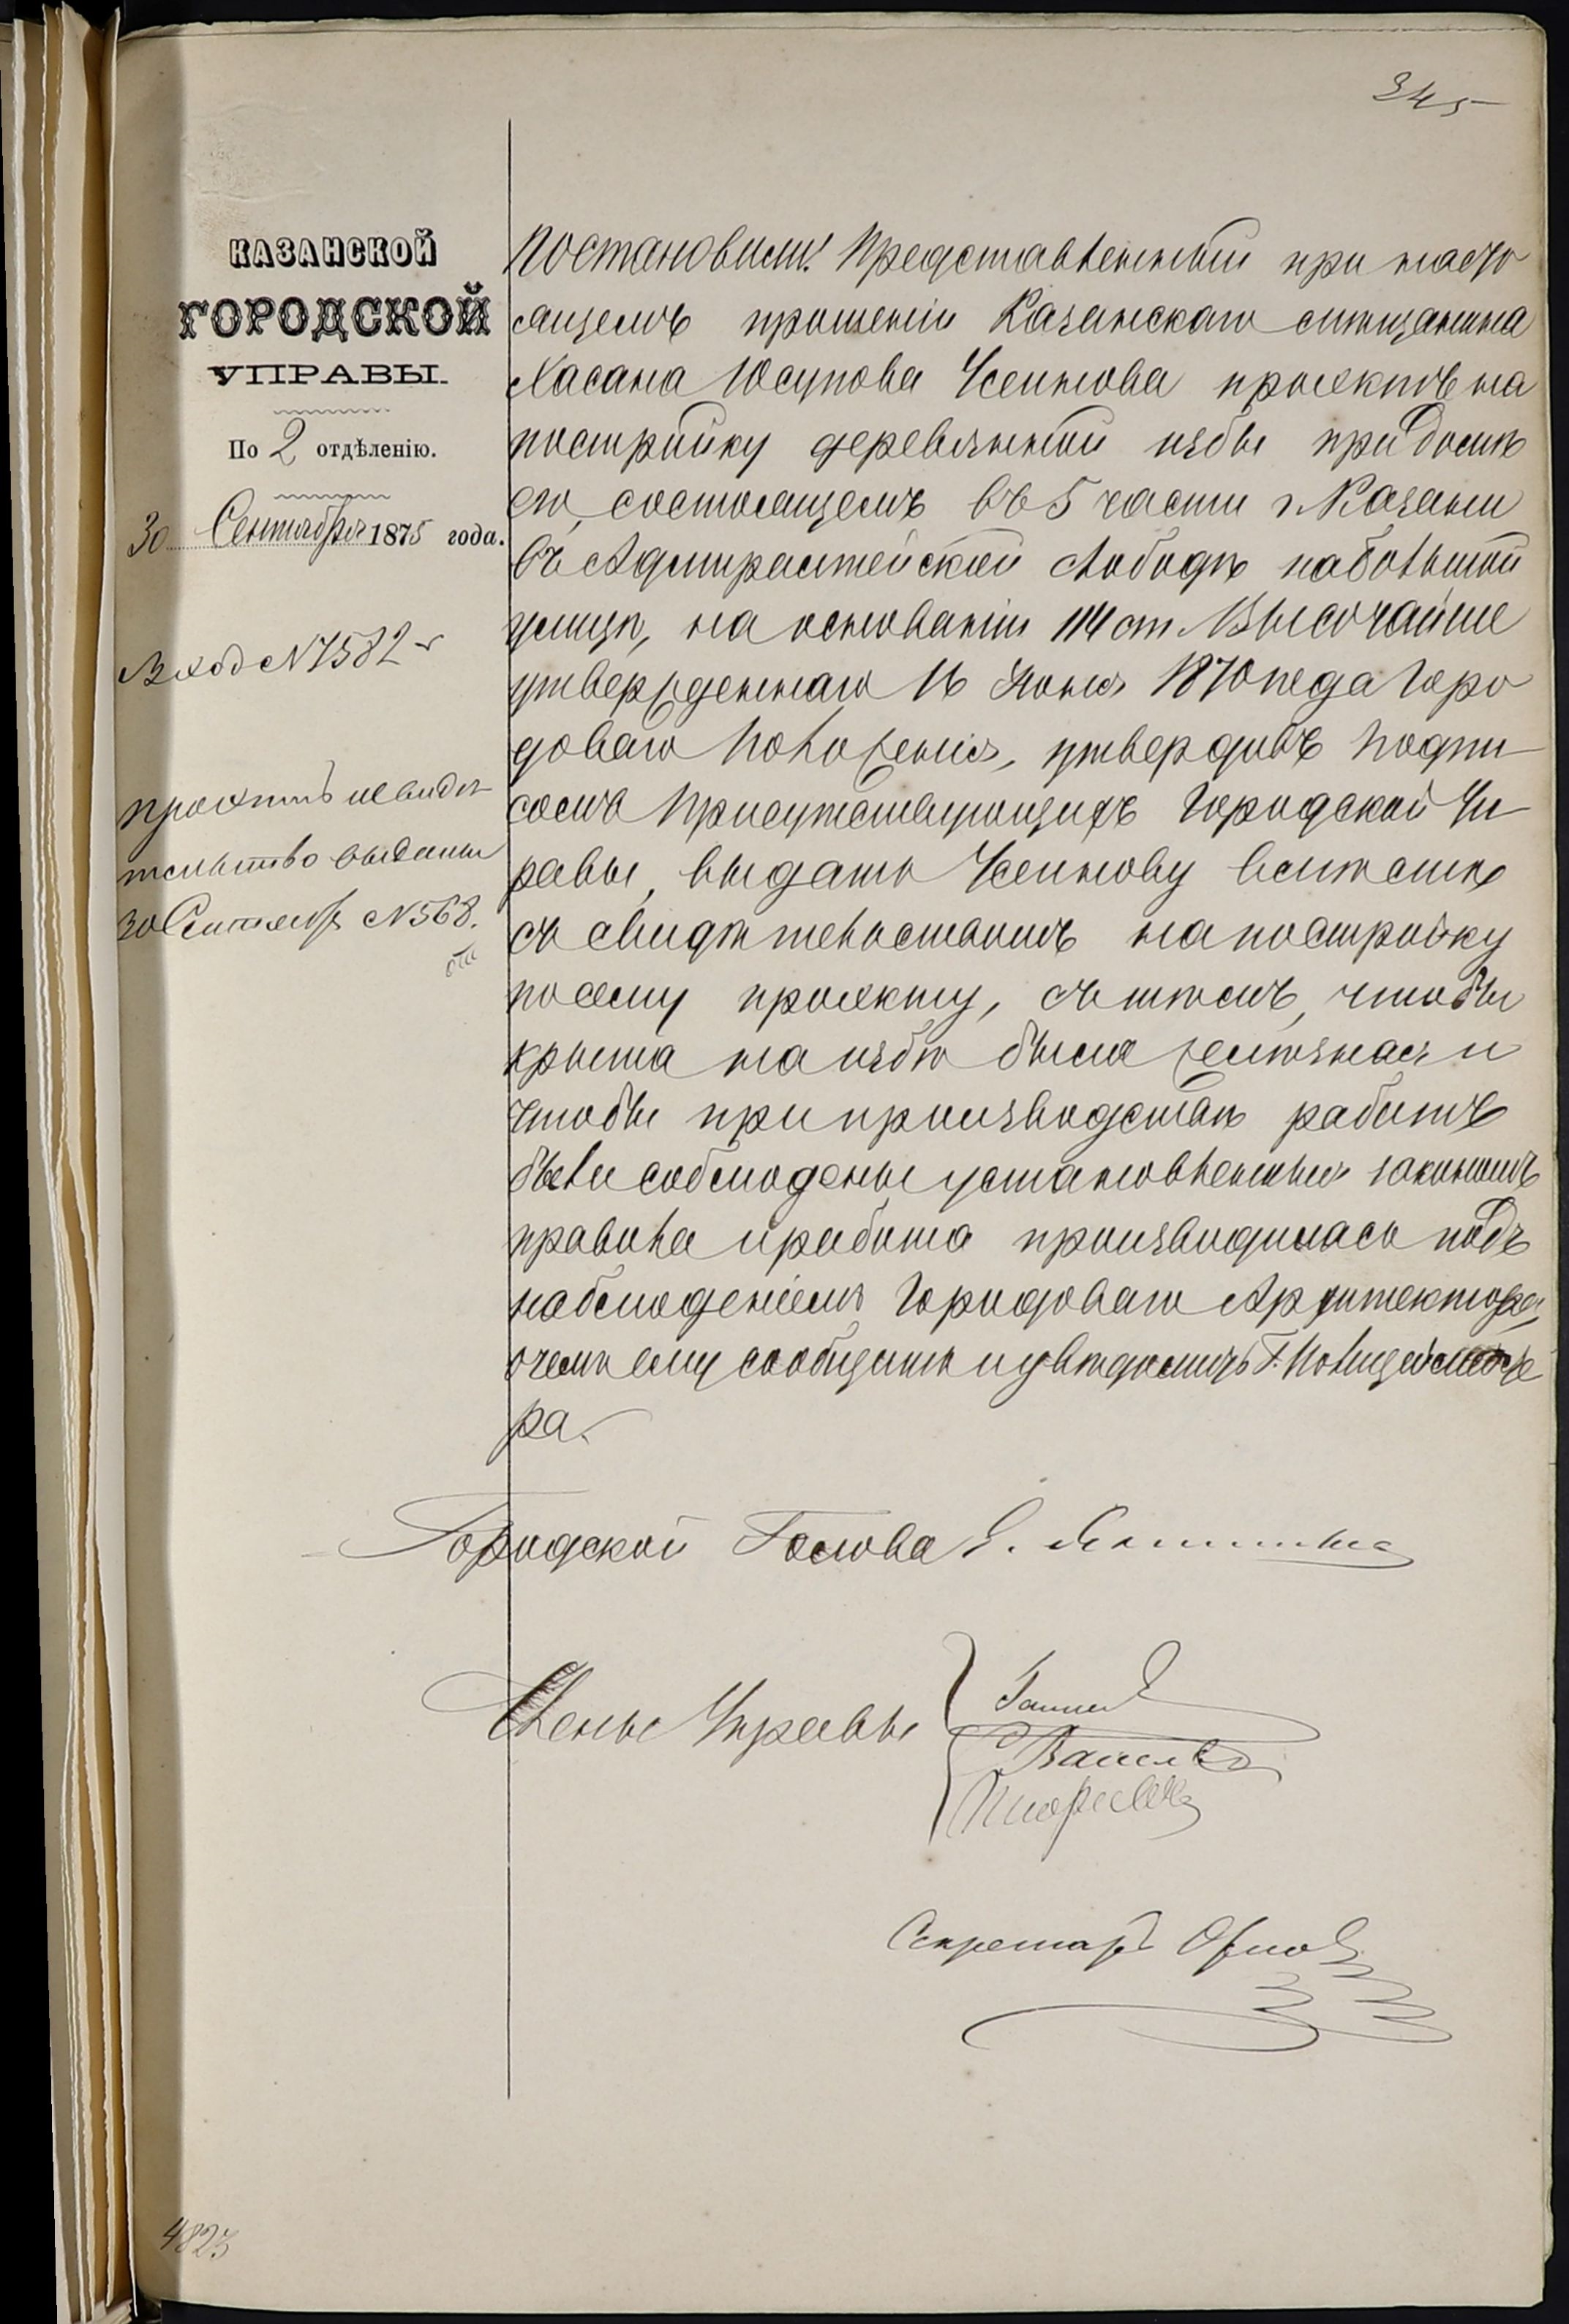 345
КАЗАНСКОЙ
ГОРОДСКОЙ
УПРАВЫ.
По 2 отдѣленію.
30 Сентября 1875 года.
Вход № 7582
Проэктъ и свидѣ
тельство выданы
30 Сентябр № 568.
Постановили: Представленный при насто
ящемъ прошеніи Казанскаго мѣщанина
Хасана Юсупова Усеинова проэктъ на
постройку деревянной избы при домѣ
его, состоящемъ въ 5 части г. Казани
въ Адмиралтейской слободѣ на большой
улицѣ, на основаніи 114 ст Высочайше
утвержденнаго 16 Іюня 1870 года Горо
доваго Положенія, утвердивъ подпи
сомъ Присутствующихъ Городской Уп
равы, выдать Усеинову вмѣстѣ
съ свидѣтельствомъ на постройку
по сему проэкту, съ тѣмъ, чтобы
крыша на избѣ была желѣзная и
чтобы при производствѣ работъ
были соблюдены установленныя закономъ
правила и работа производилась подъ
наблюденіемъ Городоваго Архитектора,
о чемъ ему сообщить и увѣдомить Г. Полицеймейсте
ра.
Городской Голова
Члены Управы
Секретарь Орлов
4823